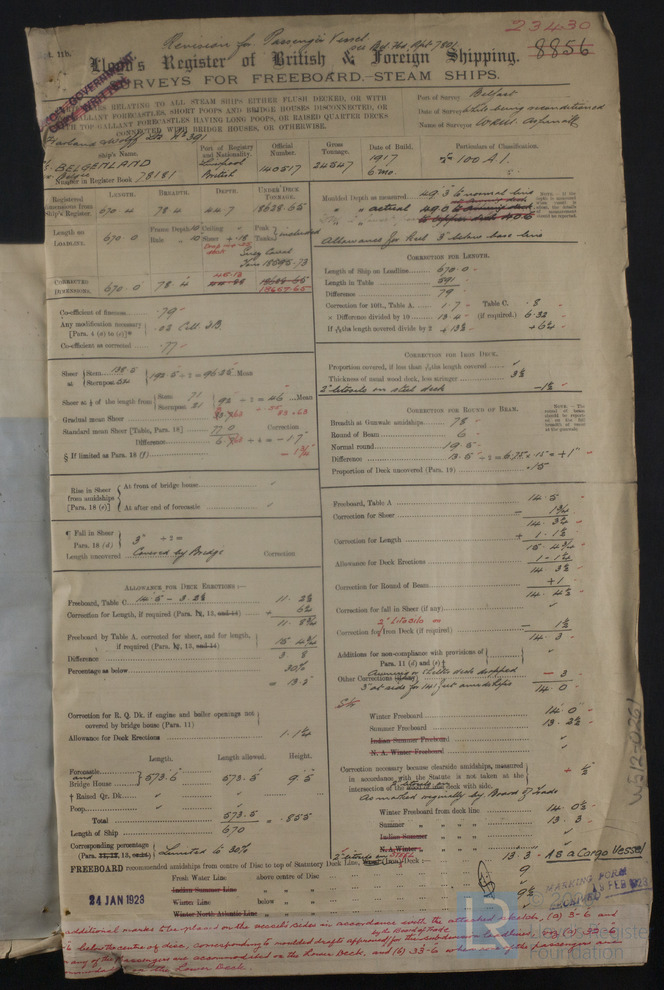 23430
Revision for Passenger Vessel
8856
Lloyd's Register of British & Foreign Shipping.
SURVEYS FOR FREEBOARD.—STEAM SHIPS.
RELATING TO ALL STEAM SHIPS EITHER FLUSH DECKED, OR WITH
GALLANT FORECASTLES, SHORT POOPS AND BRIDGE HOUSES DISCONNECTED, OR
TOP-GALLANT FORECASTLES HAVING LONG POOPS, OR RAISED QUARTER DECKS
CONNECTED WITH BRIDGE HOUSES, OR OTHERWISE.
Port of Survey Belfast
Date of Survey while being reconditioned
Name of Surveyor
Ship's Name.
BELGENLAND
Number in Register Book 78181
Port of Registry and Nationality.
Liverpool
British
Official Number.
140517
Gross Tonnage.
24547
Date of Build.
1917
6 mo.
Particulars of Classification.
100 A1.
Registered dimensions from Ship's Register.
LENGTH. 670.4
BREADTH. 78.4
DEPTH. 44.7
UNDER DECK TONNAGE. 18628.65
Length on LOADLINE. 670.0
Frame Depth
Rule
Ceiling
Sheer
Peak Tanks included
18595.73
CORRECTED DIMENSIONS. 670.0 78.4
Co-efficient of fineness .79
Any modification necessary [Para. 4 (a) to (e)] .02 Cell. D.B.
Co-efficient as corrected .77
Sheer at Stem
Sternpost
Mean
Sheer at 1/8 of the length from Stem 71
Sternpost 21
92 ÷ 2 = 46 Mean
Gradual mean Sheer
Standard mean Sheer [Table, Para. 18] 77.0
Correction
Difference
§ If limited as Para. 18 (f)
Rise in Sheer from amidships [Para. 18 (e)]
At front of bridge house
At after end of forecastle
Fall in Sheer Para. 18 (d) 3" ÷ 2 =
Length uncovered Covered by Bridge
Correction
ALLOWANCE FOR DECK ERECTIONS:—
Freeboard, Table C 14.5 - 3.2½ 11.2½
Correction for Length, if required (Para. 12, 13, and 14) + 6½
11.8¾
Freeboard by Table A, corrected for sheer, and for length, if required (Para. 12, 13, and 14) 15.4¾
Difference 3.8
Percentage as below 30%
= 13.5
Correction for R. Q. Dk. if engine and boiler openings not covered by bridge house (Para. 11)
Allowance for Deck Erections 1.1½
Length. Length allowed. Height.
Forecastle and
Bridge House 573.5 573.5 9.5
† Raised Qr. Dk.
Poop
Total 573.5
Length of Ship 670
= .855
Corresponding percentage (Para. 11, 12, 13, or 14) Limited to 30%
Moulded Depth as measured 49.3 to normal line
" " actual 49.0
Allowance for Keel 3" below base line
CORRECTION FOR LENGTH.
Length of Ship on Loadline 670.0
Length in Table 591
Difference 79
Correction for 10ft., Table A. 1.7 Table C. .8
× Difference divided by 10 13.4 (if required.) 6.32
If 6/10ths length covered divide by 2 + 13½ + 6½
CORRECTION FOR IRON DECK.
Proportion covered, if less than 7/10ths length covered
Thickness of usual wood deck, less stringer 3½
2" litosilo on steel deck
- 1½
CORRECTION FOR ROUND OF BEAM.
Breadth at Gunwale amidships 78
Round of Beam 6
Normal round 19.5
Difference 13.5 ÷ 2 = 6.75 × .15 = + 1"
Proportion of Deck uncovered (Para. 19) .15
Freeboard, Table A 14.5
Correction for Sheer - 1¾
14.3¼
Correction for Length + 1.1½
15.4¾
Allowance for Deck Erections 1.1½
14.3½
Correction for Round of Beam + 1
14.4½
Correction for fall in Sheer (if any)
2" litosilo on
Correction for Iron Deck (if required) - 1½
14.3
Additions for non-compliance with provisions of Para. 11 (d) and (e)
Other Corrections Awning or Shelter deck dropped
3" at side for 14 feet amidships - 3
14.0
Winter Freeboard 14.0
Summer Freeboard 13.2½
Indian Summer Freeboard
N. A. Winter Freeboard
Correction necessary because clearside amidships, measured
in accordance with the Statute is not taken at the
intersection of the deck with side. + ½
As marked originally by Board of Trade
Winter Freeboard from deck line 14.0½
Summer " " " 13.3
Indian Summer " " "
N.A. Winter " " "
FREEBOARD recommended amidships from centre of Disc to top of Statutory Deck Line, Deck: 13.3 - AS a Cargo Vessel
Fresh Water Line above centre of Disc 9
Indian Summer Line " "
Winter Line below " 9½
Winter North Atlantic Line " "
24 JAN 1923
MARKING FORM
RECEIVED FEB 1923
W512-0261
additional marks to be placed on the vessel's sides in accordance with the attached sketch, (a) 3-6 and
by the Board of Trade
below centre of disc, corresponding to moulded drafts approved for the subdivision loadlines, (a) 33-6
any of the passengers are accommodated on the Lower Deck, and (b) 33-6 when any of the passengers are
on the Lower Deck.
LR
© 2021
Lloyd's Register
Foundation